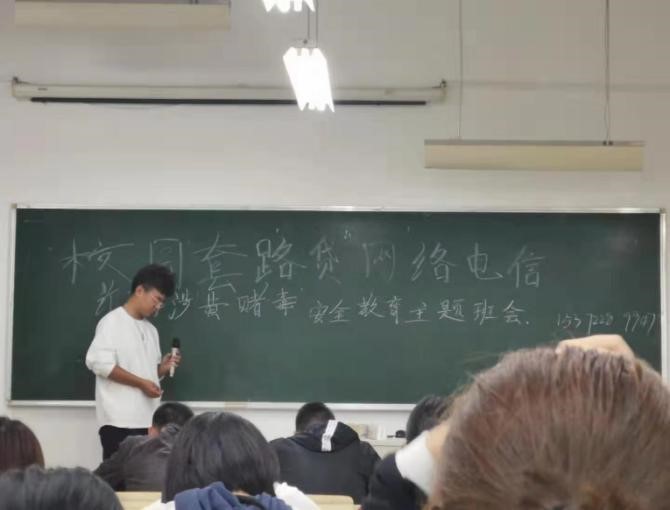 "校园套路贷""网络电信
诈 涉黄赌毒 安全教育主题班会.